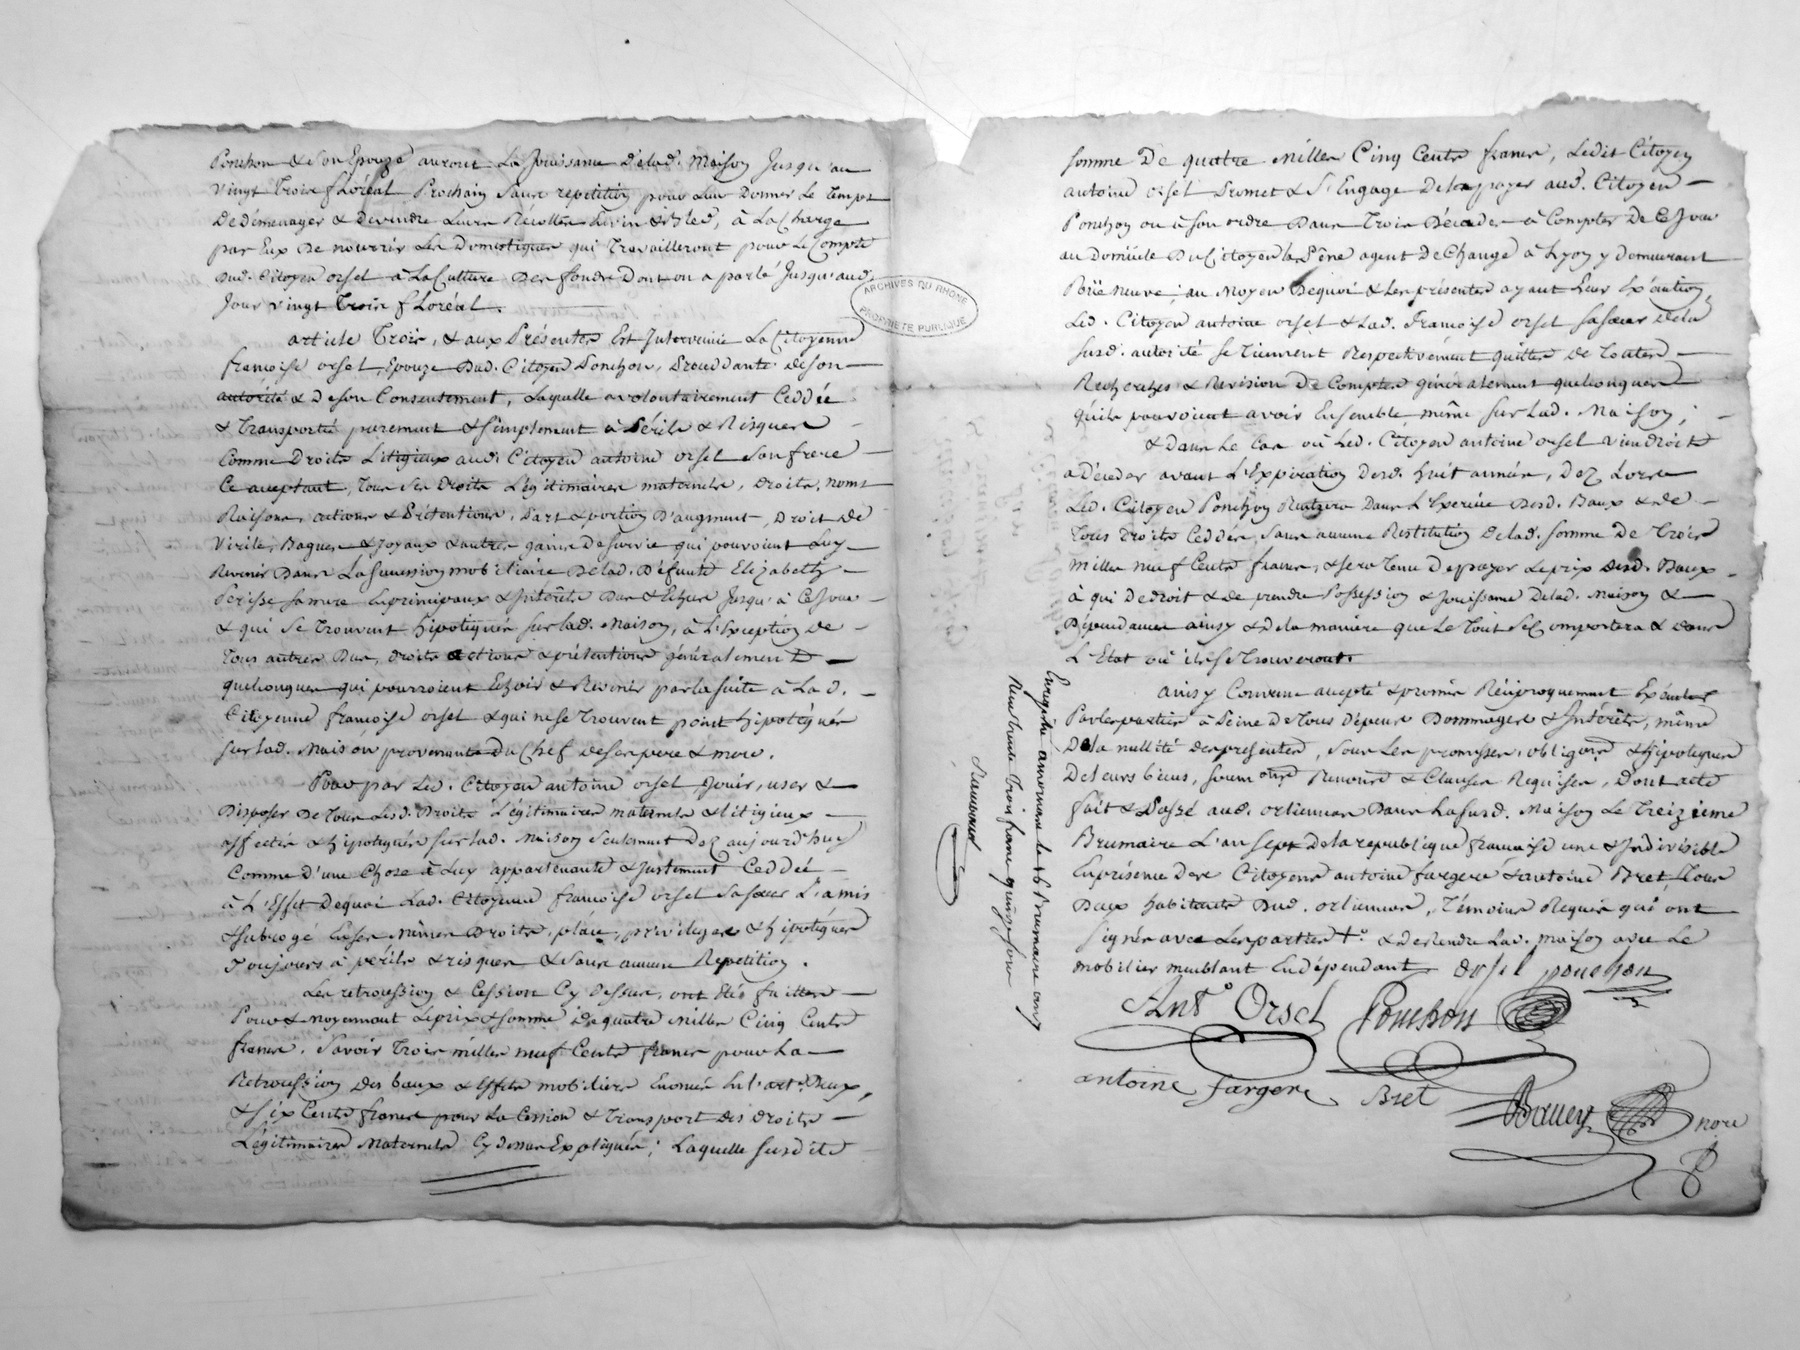 Ponchon & Son Epouze auront La Jouissance delad. Maison Jusqu'au
Vingt Trois floréal Prochain Sans repetition pour Leur Donner Le temps
De déménager & de vendre Leurs Recoltes En vin & Bled, à La charge
par Eux De nourrir Les Domestiques qui Travailleront pour Le Compte
Dud. Citoyen orsel à La Culture Des fonds Dont on a parlé Jusqu'aud.
Jour Vingt Trois floréal.
ARCHIVES DU RHONE
PROPRIETE PUBLIQUE
article Trois, & aux Présentes Est Intervenüe La Citoyenne
françoise orsel, Epouze Dud. Citoyen Ponchon, Procédante de son
autorité & De son Consentement, Laquelle a volontairement Ceddée
& Transporté purement & simplement à Périls & Risques
Comme Droits Litigieux aud. Citoyen antoine orsel Son frere
Ce acceptant, Tous Ses Droits Légitimaires maternels, droits, noms
Raisons, actions & Prétentions, Part & portion D'augment, Droit de
Virile, Bagues & Joyaux & autres gains De Survie qui pouvoient Luy
Revenir Dans La Succession mobiliaire Delad. Défunte Elizabeth
Périsse Sa mere En principaux & Intérêts Dus & Echus Jusqu'à Ce Jour
& qui Se Trouvent hipotéqués Sur lad. Maison, à L'Exception de
Tous autres Dus, droits actions & prétentions généralement
quelconques qui pourroient Echoir & Revenir par la suite à Lad.
Citoyenne françoise orsel & qui ne se Trouvent point hipotéqués
Sur lad. Maison provenants Du Chef de Ses pere & mere.
Pour par Led. Citoyen antoine orsel Jouir, user &
Disposer De Tous Lesd. Droits Légitimaires maternels & litigieux
affectés & hipotéqués sur lad. Maison Seulement Dez aujourd'huy
Comme D'une Choze à Luy appartenante & Justement Ceddée
à L'Effet De quoi Lad. Citoyenne françoise orsel Sa sœur L'a mis
& Subrogé En Ses mêmes Droits, place, privileges & hipotéques
Toujours à périls & risques & Sans aucune Repetition.
Les retrocession & Cession Cy dessus, ont étés faittes
Pour & moyennant Le prix & Somme de quatre Milles Cinq Cents
francs. Savoir Trois milles neuf Cents francs pour La
Retrocession des baux & Effets mobiliers Enoncés En l'art. Deux,
& Six Cents francs pour La Cession & Transport des droits
Légitimaires Maternels Cy dessus Expliqués; Laquelle Susdite
somme De quatre Milles Cinq Cents francs, Ledit Citoyen
antoine orsel Promet & S'Engage De la payer aud. Citoyen
Ponchon ou à son ordre Dans Trois Décades à Compter De Ce Jour
au Domicile Du Citoyen agent De Change à Lyon y demeurant
neuve; au Moyen Dequoi & Les présentes ayant Leur Exécution,
Led. Citoyen antoine orsel & Lad. françoise orsel sa sœur De la
susd. autorité se Tiennent Respectivement quittes de Toutes
Recherches & Révision De Comptes généralement quelconques
qu'ils pouvoient avoir Ensemble même Sur Lad. Maison;
& Dans Le Cas où Led. Citoyen antoine orsel viendroit
a Décéder avant L'Expiration Desd. huit années, Dez Lors
Led. Citoyen Ponchon Rentrera Dans L'Exercice Desd. Baux & de
Tous Droits Ceddés, Sans aucune Restitution Delad. Somme De Trois
milles neuf Cents francs, & sera Tenu De payer Le prix desd. Baux
à qui De droit & de prendre Possession & Jouissance Delad. Maison &
Dépendances ainsy & De la maniere que Le Tout Se Comportera & Dans
L'Etat où ils Se Trouveront.
ainsy Convenu accepté & promis Réciproquement Exécuter
Par Les parties à Peine De Tous Dépens Dommages & Intérêts, même
De la nullité des présentes, sous Les promesses, obligons & hipoteques
De Leurs biens, soumons Renonces & Clauses Requises, Dont acte
fait & Passé aud. orlienas Dans La susd. Maison Le Treizieme
Brumaire L'an Sept de la republique française une & Indivisible
En présence Des Citoyens antoine fargere & antoine Bret Tous
Deux habitants Dud. orlienas, Témoins Requis qui ont
signés avec Les parties & De Rendre Lad. maison avec Le
mobilier meublant En dépendant orsel ponchon
Ant.e Orsel Ponchon
antoine fargere Bret
nore
Enregistré a mornant le 16 Brumaire an 7
Reçu trente trois francs quinze sous